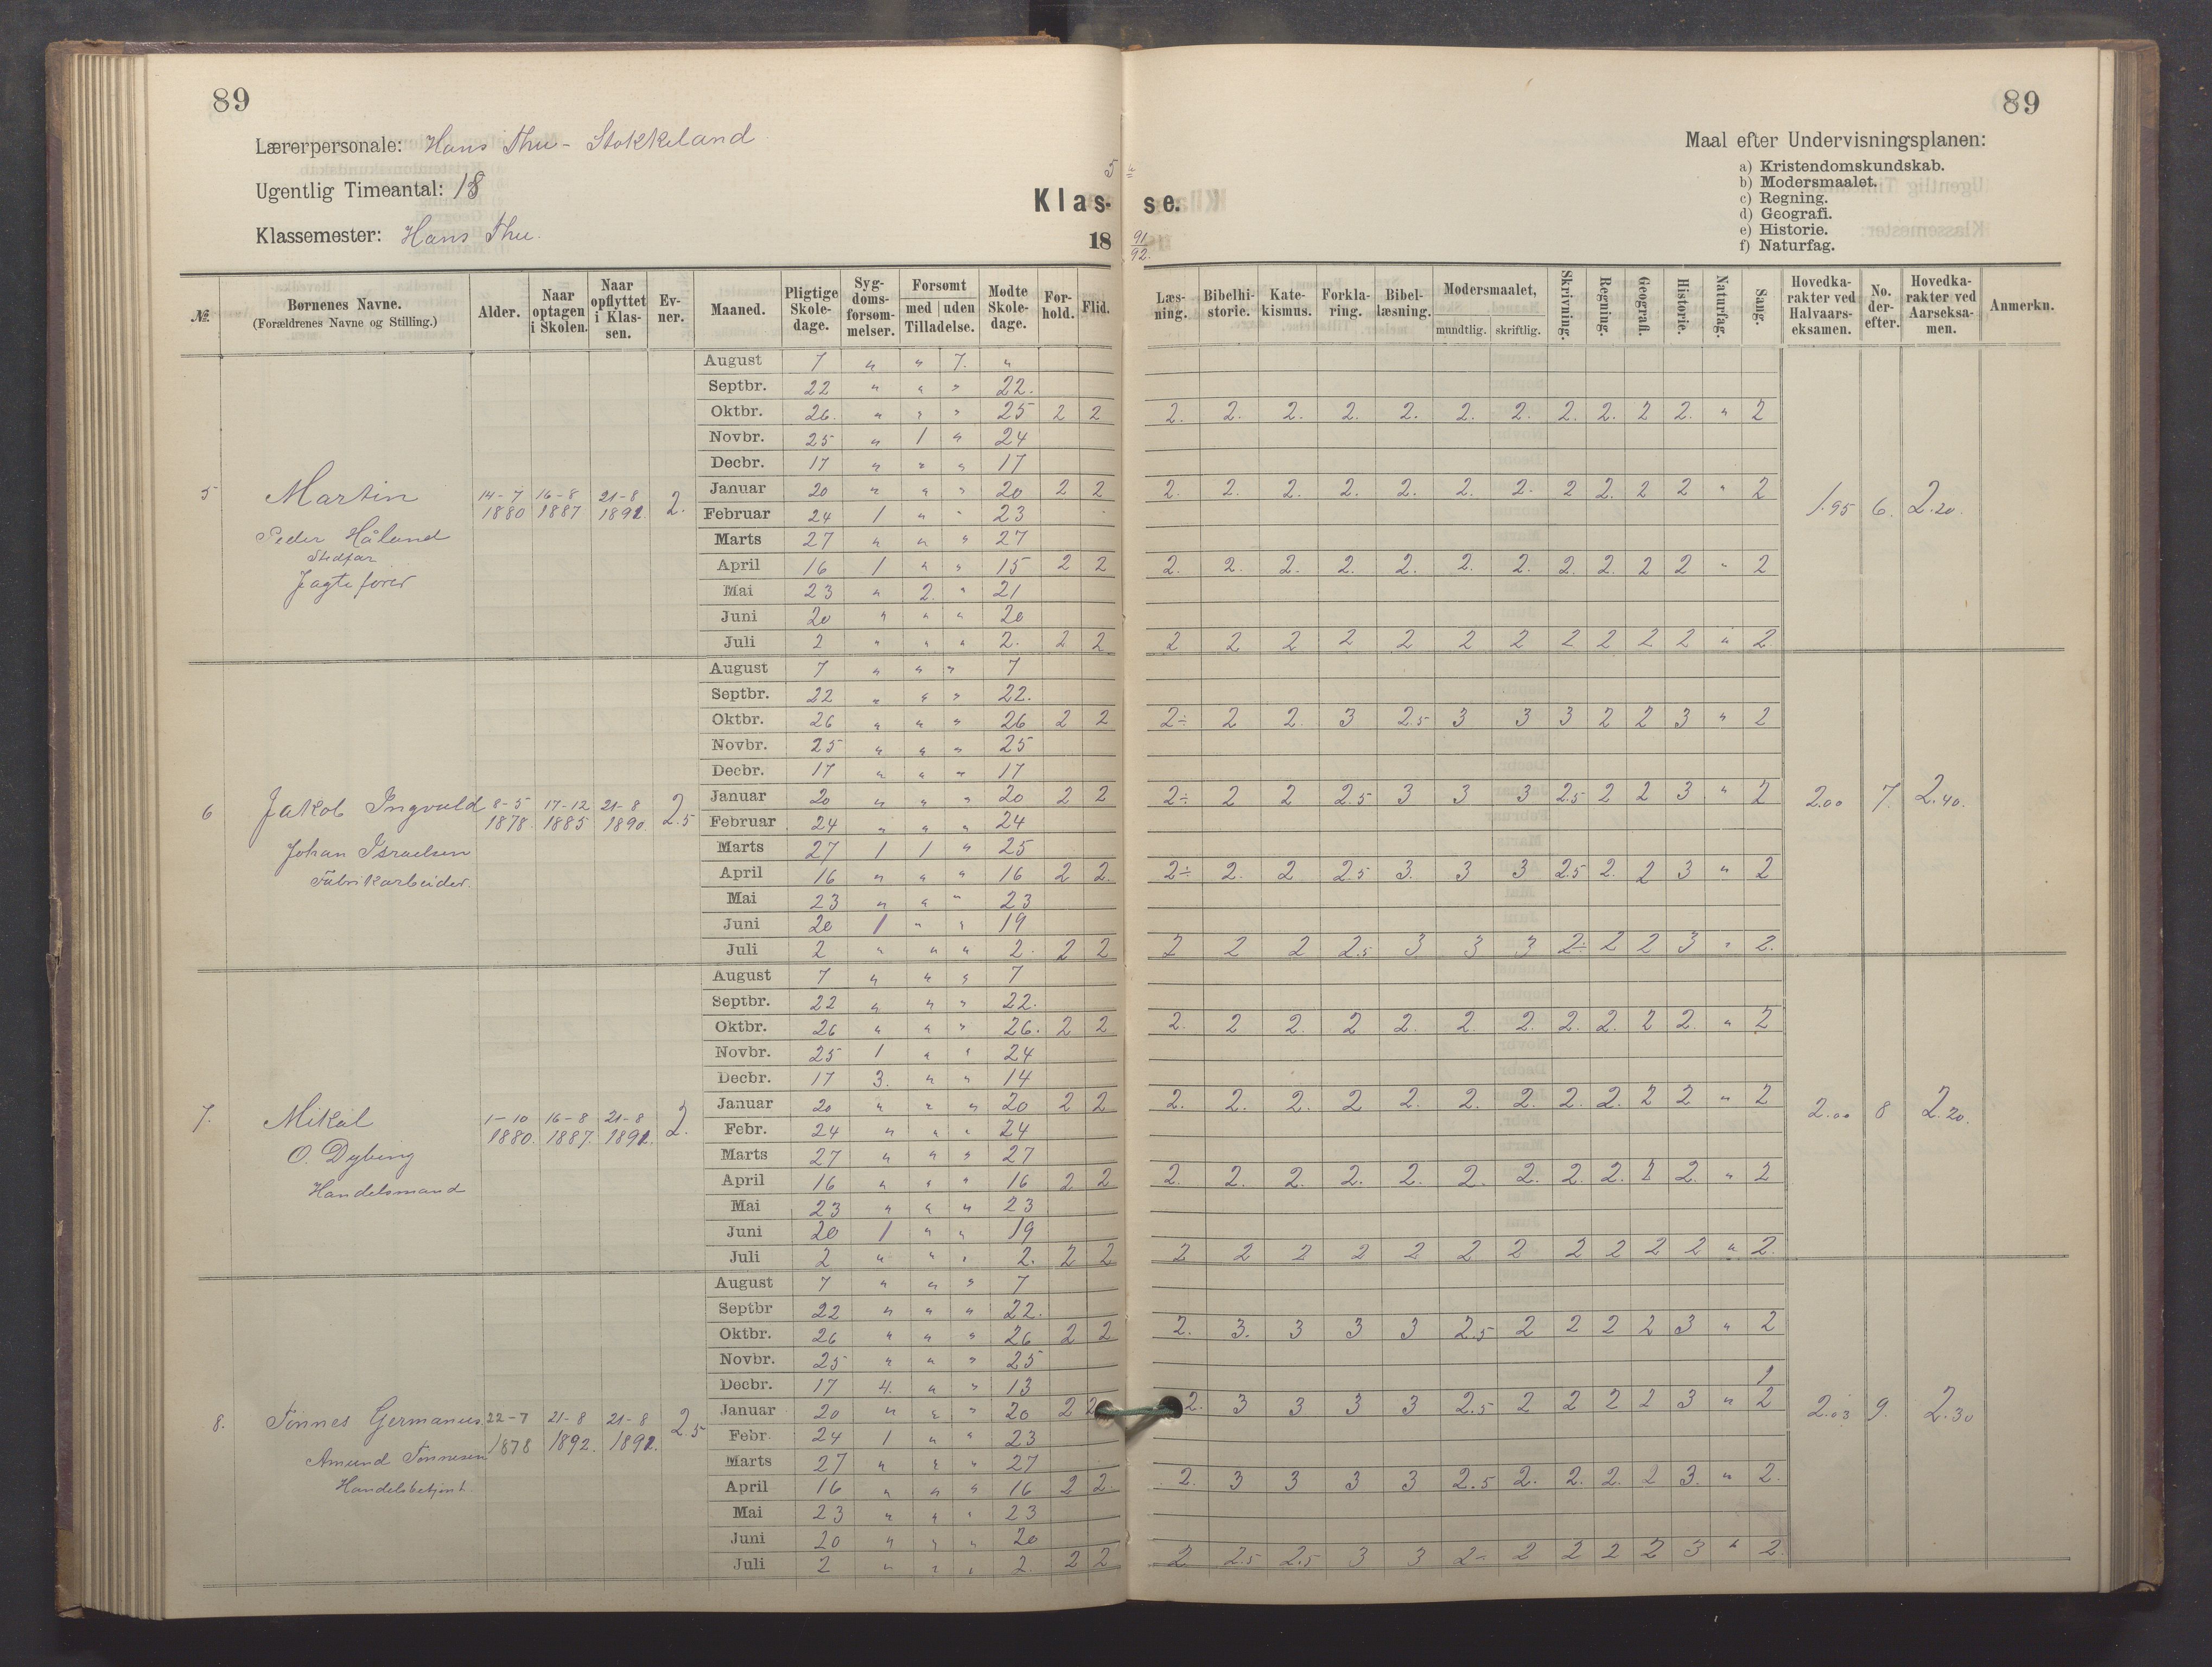 89
89
Lærerpersonale: Hans Thu - Stokkeland
Ugentlig Timeantal: 18
Klassemester: Hans Thu.
5
Klasse.
18 91/92.
Maal efter Undervisningsplanen:
a) Kristendomskundskab.
b) Modersmaalet.
c) Regning.
d) Geografi.
e) Historie.
f) Naturfag.
№. Børnenes Navne. (Forældrenes Navne og Stilling.) Alder. Naar optagen i Skolen. Naar opflyttet i Klassen. Evner. Maaned. Pligtige Skoledage. Sygdomsforsømmelser. Forsømt med uden Tilladelse. Mødte Skoledage. Forhold. Flid. Læsning. Bibelhistorie. Katekismus. Forklaring. Bibellæsning. Modersmaalet, mundtlig. skriftlig. Skrivning. Regning. Geografi. Historie. Naturfag. Sang. Hovedkarakter ved Halvaarseksamen. No. derefter. Hovedkarakter ved Aarseksamen. Anmerkn.
5 Martin 14-7 1880 16-8 1887 21-8 1891. 2. 1.95 6. 2.20.
Peder Håland
Stedfar
Jagtefører
August 7 " " 7. "
Septbr. 22 " " " 22.
Oktbr. 26. " " " 25 2 2 2. 2. 2. 2. 2. 2. 2. 2. 2. 2 2. " 2
Novbr. 25 " 1 " 24
Decbr. 17 " " " 17
Januar 20 " " " 20 2 2 2. 2. 2. 2. 2. 2. 2. 2 2. 2 2 " 2
Februar 24 1 " " 23
Marts 27 " " " 27
April 16 1 " " 15 2 2 2. 2. 2. 2. 2. 2. 2. 2. 2. 2 2 " 2
Mai 23 " 2. " 21
Juni 20 " " " 20
Juli 2 " " " 2. 2 2 2 2 2 2 2 2 2 2 2 2 2 " 2
6 Jakob Ingvald 8-5 1878. 17-12 1885 21-8 1890. 2.5 2.00 7. 2.40.
Johan Israelsen
Fabrikarbeider.
August 7 " " " 7
Septbr. 22 " " " 22.
Oktbr. 26 " " " 26 2 2 2÷ 2 2. 3 2.5 3 3 3 2 2 3 " 2
Novbr. 25 " " " 25
Decbr. 17 " " " 17
Januar 20 " " " 20 2 2 2÷ 2 2 2.5 3 3 3 2.5 2 2 3 " 2
Februar 24 " " " 24
Marts 27 1 1 " 25
April 16 " " " 16 2 2. 2÷ 2. 2 2.5 3. 3 3 2.5 2. 2 3 " 2
Mai 23 " " " 23
Juni 20 1 " " 19
Juli 2 " " " 2. 2 2 2 2 2 2.5 3 3 3 2÷ 2 2 3 " 2.
7. Mikal 1-10 1880. 16-8 1887. 21-8 1891. 2. 2.00 8 2.20.
O. Dybing
Handelsmand
August 7 " " " 7
Septbr. 22 " " " 22.
Oktbr. 26 " " " 26. 2 2 2. 2 2. 2 2. 2. 2. 2. 2. 2 2. " 2
Novbr. 25 1 " " 24
Decbr. 17 3. " " 14
Januar 20 " " " 20 2 2 2. 2. 2. 2 2. 2. 2. 2. 2. 2 2 " 2
Febr. 24 " " " 24
Marts 27 " " " 27
April 16 " " " 16 2 2 2. 2. 2. 2. 2. 2. 2. 2. 2. 2 2. " 2
Mai 23 " " " 23
Juni 20 1 " " 19
Juli 2 " " " 2. 2 2 2 2 2 2 2 2 2 2 2 2 2 " 2.
8. Tönnes Germanius 22-7 1878 21-8 1892. 21-8 1891. 2.5 2.03 9. 2.30
Amund Tönnesen
Handelsbetjent.
August 7 " " " 7
Septbr 22 " " " 22.
Oktbr. 26 " " " 26 2 2 2. 3. 3 3 3 2.5 2 2 2 2 3 " 2
Novbr. 25 " " " 25
Decbr. 17 4. " " 13 1
Januar 20 " " " 20 2 2 2. 3 3 3 3 2.5 2 2 2 2 3 " 2
Febr 24 1 " " 23
Marts 27 " " " 27
April 16 " " " 16 2 2. 2. 3 3 3 3 2.5 2. 2. 2. 2 3. " 2.
Mai 23 " " " 23
Juni 20 " " " 20
Juli 2 " " " 2. 2 2 2 2.5 2.5 3 3 2÷ 2 2 2 2 3 " 2.